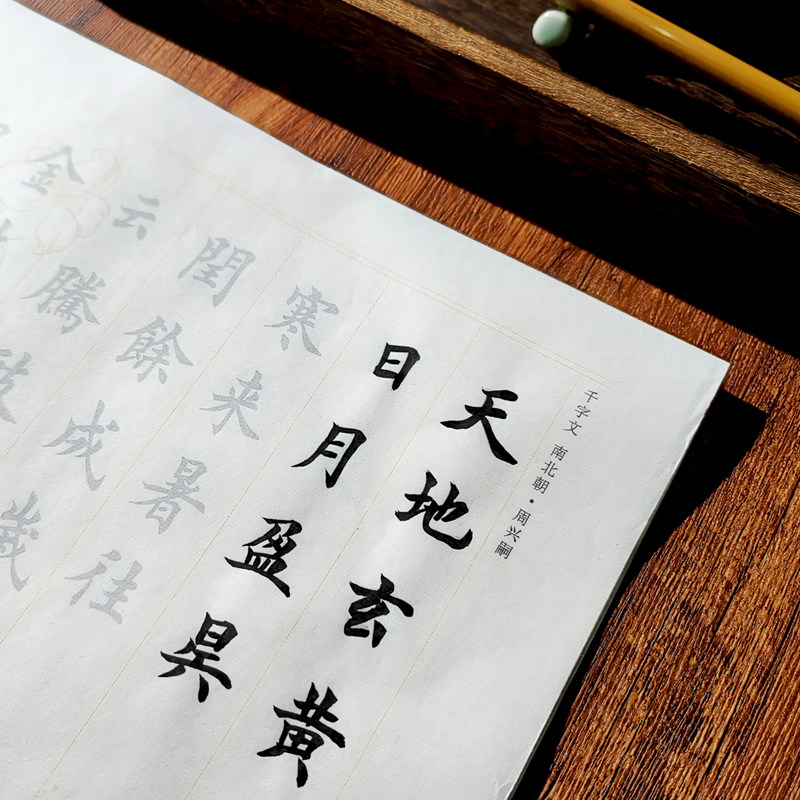 千字文 南北朝•周兴嗣
天地玄黄
日月盈昃
寒来暑往
閏餘成歲
云騰致
金